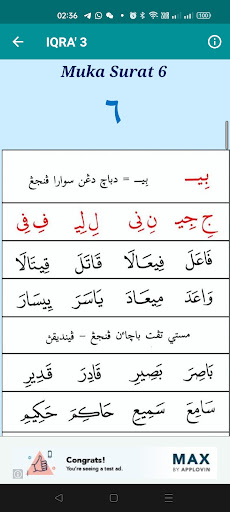 02:36
IQRA' 3
Muka Surat 6
٦
بِيـــ بِيـ = دباچ دڠن سوارا ڤنجڠ
جِ جِيـ نِ نِي لِ لِيـ فِ فِي
فَاعَلَ فِيعَالَا قَاتَلَ قِيتَالَا
وَاعَدَ مِيعَادَ يَاسَرَ يِيسَارَ
مستي تڤت باچاءن ڤنجڠ – ڤينديقڽ
بَاصِرَ بَصِيرِ قَادِرَ قَدِيرِ
سَامِعَ سَمِيعِ حَاكِمَ حَكِيمِ
Congrats!
You're seeing a test ad.
MAX
BY APPLOVIN